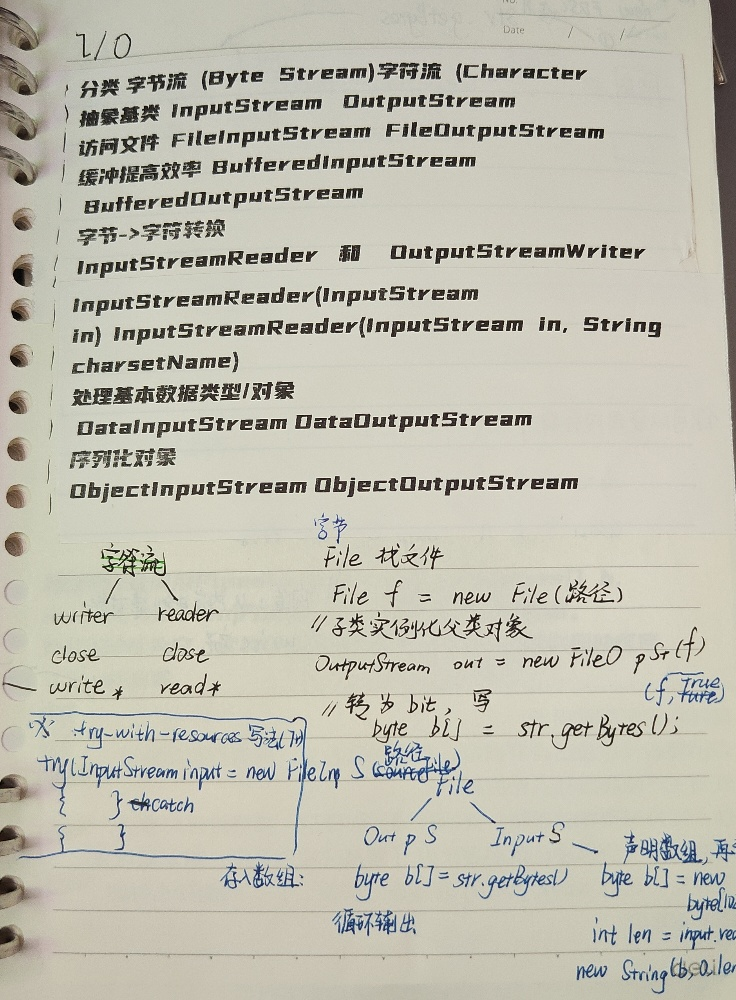 No.
Date / /
I/O
分类 字节流 (Byte Stream)字符流 (Character
抽象基类 InputStream OutputStream
访问文件 FileInputStream FileOutputStream
缓冲提高效率 BufferedInputStream
BufferedOutputStream
字节->字符转换
InputStreamReader 和 OutputStreamWriter
InputStreamReader(InputStream
in) InputStreamReader(InputStream in, String
charsetName)
处理基本数据类型/对象
DataInputStream DataOutputStream
序列化对象
ObjectInputStream ObjectOutputStream
字符流
writer reader
close close
write* read*
字节
File 找文件
File f = new File(路径)
//子类实例化父类对象
OutputStream out = new FileO p St(f)
(f, True)
//转为bit, 写
byte b[] = str.getBytes();
※ try-with-resources写法(7+)
try(InputStream input = new FileInp S(路径)
{ } catch
{ }
File
Out p S Input S
存入数组: byte b[] = str.getBytes()
循环输出
声明数组, 再
byte b[] = new
byte[10
int len = input.rea
new String(b,0,len
deli